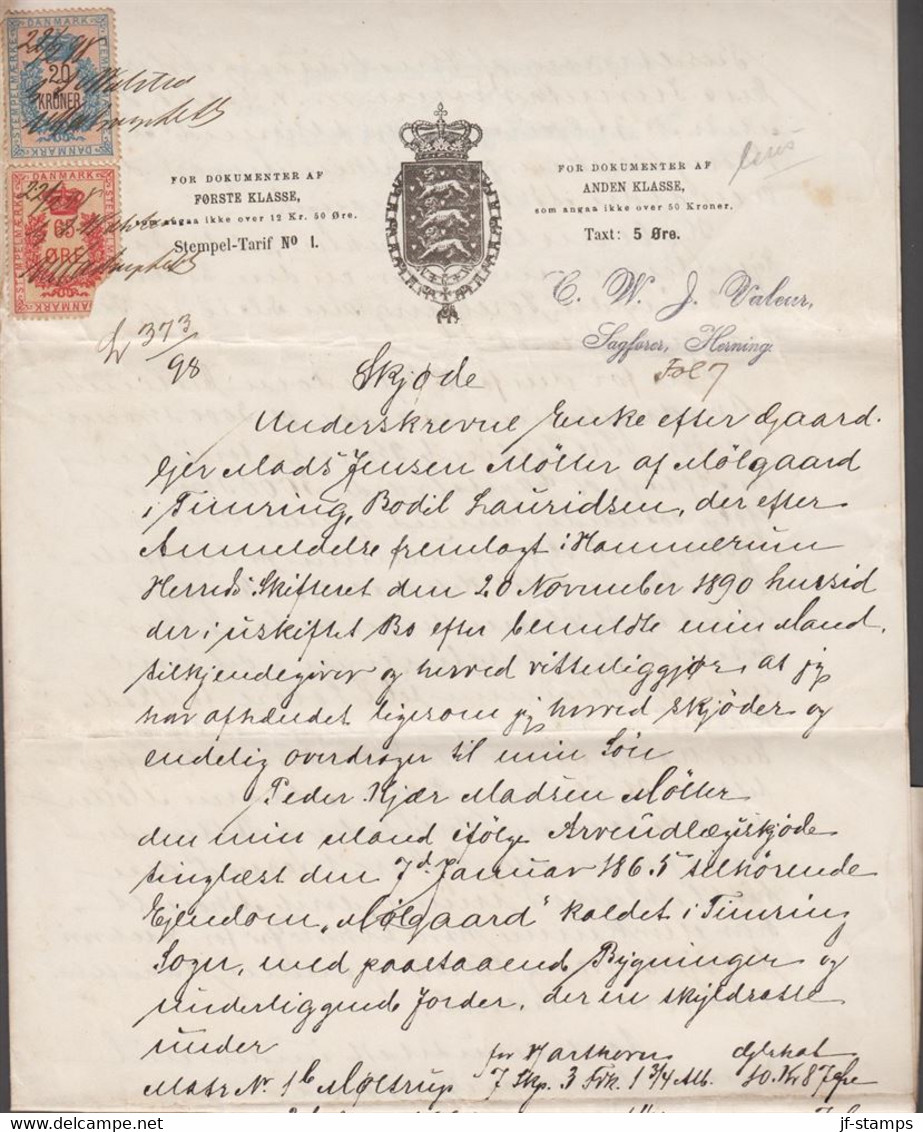 DANMARK
STEMPELMÆRKE
20
KRONER
DANMARK
DANMARK
STEMPELMÆRKE
65
ØRE
DANMARK
FOR DOKUMENTER AF
FØRSTE KLASSE,
angaa ikke over 12 Kr. 50 Øre.
Stempel-Tarif No 1.
FOR DOKUMENTER AF
ANDEN KLASSE,
som angaa ikke over 50 Kroner.
Taxt: 5 Øre.
C. W. J. Valeur,
Sagfører, Herning.
373/98
Fol 7
Skjøde
Underskrevne Enke efter Gaard-
ejer Mads Jensen Möller af Mölgaard
i Timring, Bodil Lauridsen, der efter
Anmeldelse fremlagt i Hammerum
Herreds Skifteret den 20 November 1890 hensid
der i uskiftet Bo efter bemeldte min Mand,
tilkjendegiver og herved vitterliggjør, at jeg
har afhændet ligesom jeg herved skjøder og
endelig overdrager til min Sön
Peder Kjær Madsen Möller
den min Mand ifölge Arveudlægsskjöde
tinglæst den 7d Januar 1865 tilhörende
Ejendom, "Mölgaard" kaldet i Timring
Sogn, med paastaaende Bygninger og
underliggende Jorder, der er skyldsatte
under for Hartkorn Glskat
Matr Nr. 1b Möltrup 7 Skp. 3 Fdk. 1 3/4 Alb. 10 Kr 87 Øre
jf-stamps